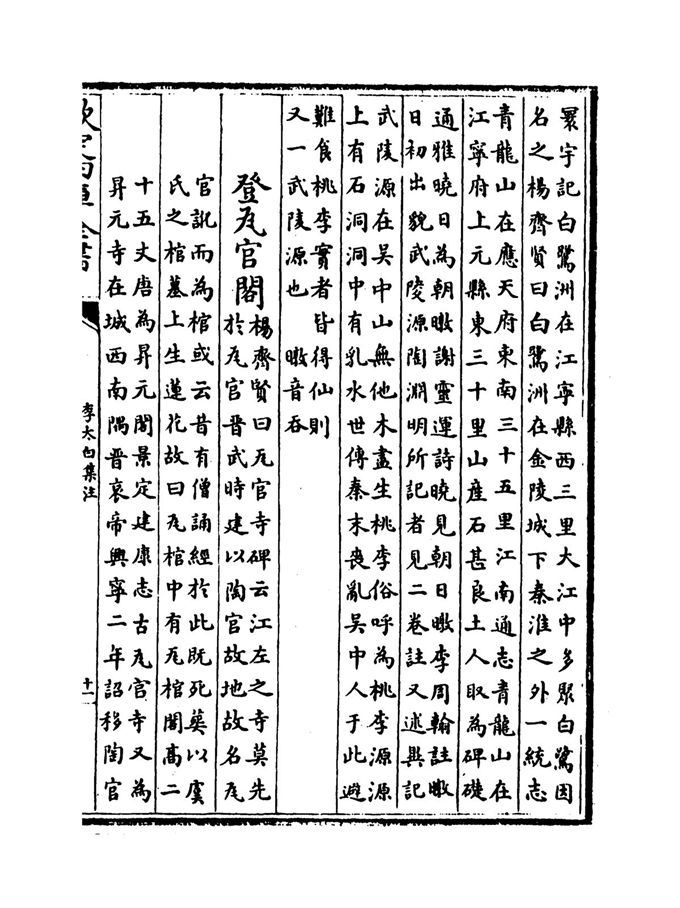 寰宇記白鷺洲在江寧縣西三里大江中多聚白鷺因
名之楊齊賢曰白鷺洲在金陵城下秦淮之外一統志
青龍山在應天府東南三十五里江南通志青龍山在
江寧府上元縣東三十里山産石甚良土人取為碑礎
通雅曉日為朝暾謝靈運詩曉見朝日暾李周翰註暾
日初出貌武陵源陶淵明所記者見二卷註又述異記
武陵源在吳中山無他木盡生桃李俗呼為桃李源源
上有石洞洞中有乳水世傳秦末喪亂吳中人于此避
難食桃李實者皆得仙則
又一武陵源也 暾音吞
登瓦官閣
楊齊賢曰瓦官寺碑云江左之寺莫先
於瓦官晉武時建以陶官故地故名瓦
官訛而為棺或云昔有僧誦經於此既死葬以虞
氏之棺墓上生蓮花故曰瓦棺中有瓦棺閣高二
十五丈唐為昇元閣景定建康志古瓦官寺又為
昇元寺在城西南隅晉哀帝興寧二年詔移陶官
欽定四庫全書
李太白集注
十一